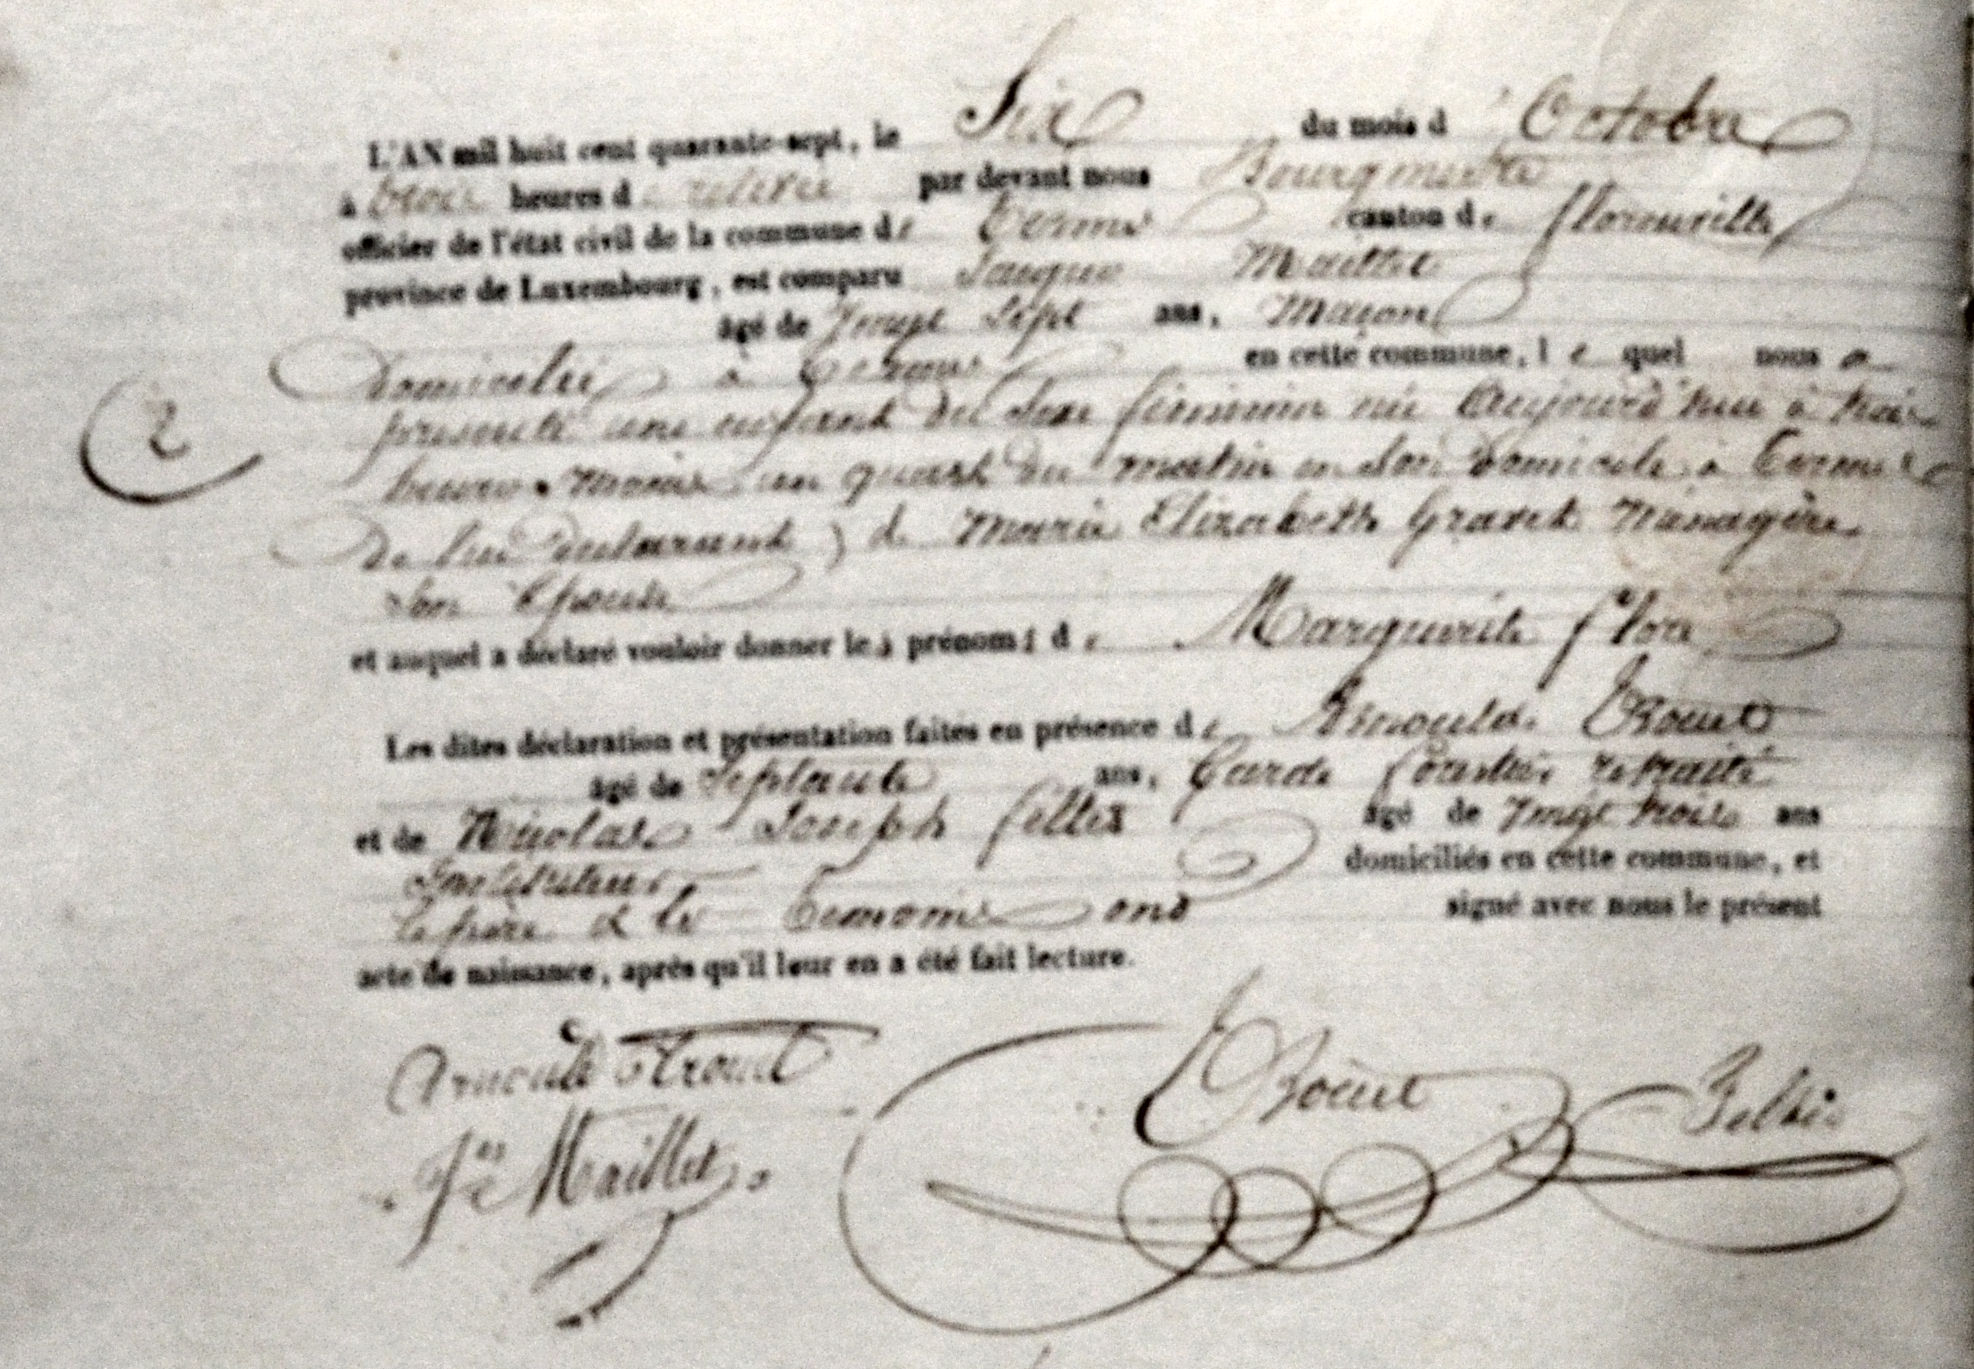 L'AN mil huit cent quarante-sept, le Six du mois d'Octobre
à trois heures de relevée par devant nous Bourgmestre
officier de l'état civil de la commune de Termes canton de florenville
province de Luxembourg, est comparu Jacques Maillet
âgé de Vingt Sept ans, Maçon
Domicilié à Termes en cette commune, lequel nous a
présenté une enfant du Sexe féminin née Aujourd'hui à trois
heures moins un quart du matin en Son Domicile à Termes
De lui Déclarant, & de Marie Elizabeth Gravet Ménagère
Son Epouse
2
et auquel a déclaré vouloir donner les prénoms de Marguerite flore
Les dites déclaration et présentation faites en présence de Arnould Trouet
âgé de Septante ans, Garde forestier retraité
et de Nicolas Joseph feltes âgé de Vingt trois ans
Instituteur domiciliés en cette commune, et
le père & les Temoins ont signé avec nous le présent
acte de naissance, après qu'il leur en a été fait lecture.
Arnould Trouet Trouet
Jques Maillet